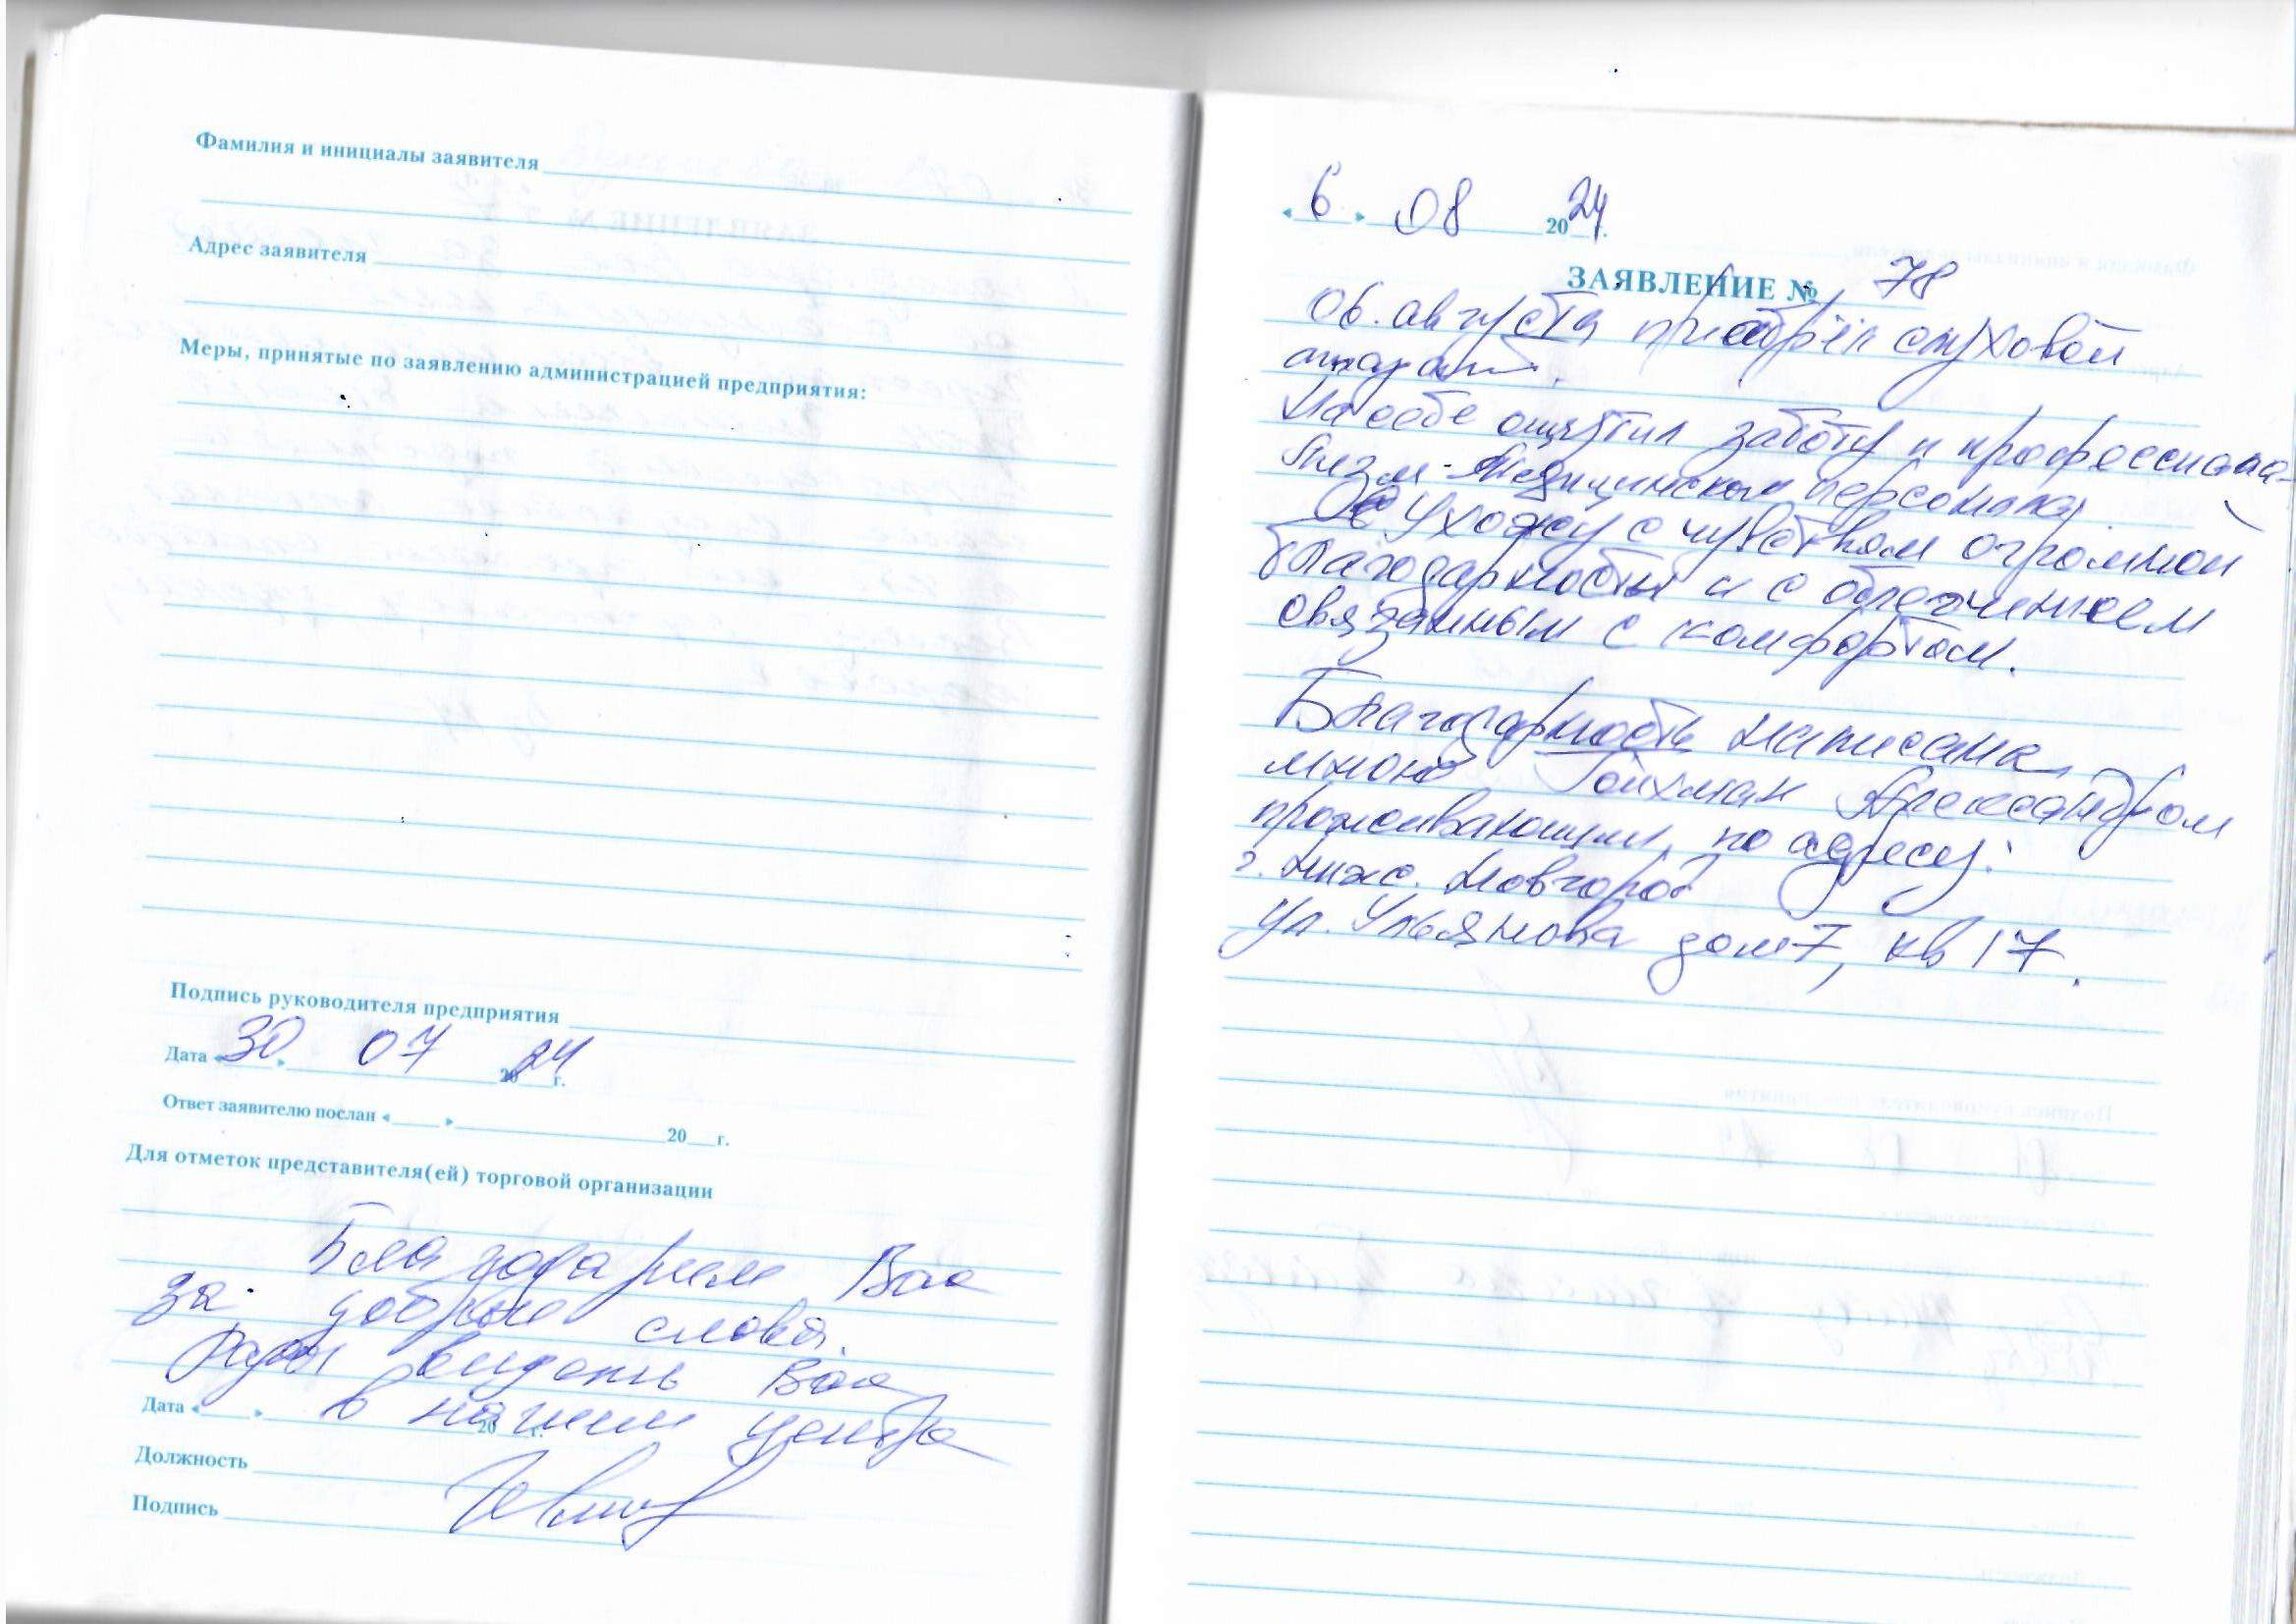 Фамилия и инициалы заявителя
Адрес заявителя
Меры, принятые по заявлению администрацией предприятия:
Подпись руководителя предприятия
Дата « 30 » 07 2024 г.
Ответ заявителю послан « » 20 г.
Для отметок представителя(ей) торговой организации
Благодарим Вас
за добрые слова.
Рады видеть Вас
в нашем центре
Дата « » 20 г.
Должность
Подпись
« 6 » 08 2024 г.
ЗАЯВЛЕНИЕ № 78
06. августа приобрёл слуховой
аппарат.
На себе ощутил заботу и профессиона-
лизм медицинского персонала.
Ухожу с чувством огромной
благодарности и с облегчением
связанным с комфортом.
Благодарность написана
мною Гойхман Александром
проживающим по адресу:
г. Нижс. Новгород
ул. Ульянова дом 7, кв 17.